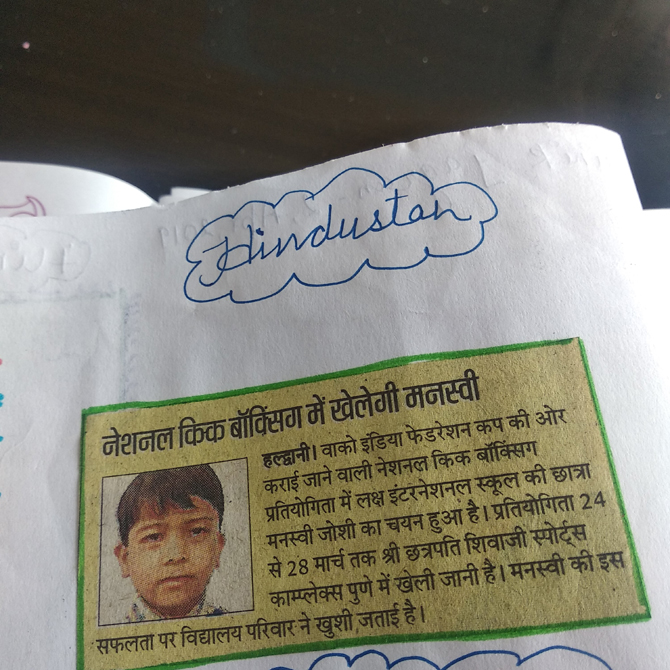 Hindustan
नेशनल किक बॉक्सिंग में खेलेगी मनस्वी
हल्द्वानी। वाको इंडिया फेडरेशन कप की ओर
कराई जाने वाली नेशनल किक बॉक्सिंग
प्रतियोगिता में लक्ष इंटरनेशनल स्कूल की छात्रा
मनस्वी जोशी का चयन हुआ है। प्रतियोगिता 24
से 28 मार्च तक श्री छत्रपति शिवाजी स्पोर्ट्स
काम्प्लेक्स पुणे में खेली जानी है। मनस्वी की इस
सफलता पर विद्यालय परिवार ने खुशी जताई है।